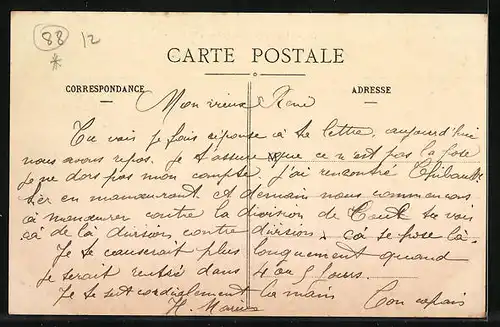 88 12
CARTE POSTALE
CORRESPONDANCE
ADRESSE
Mon vieux René
Tu vais je fais réponse à ta lettre, aujourd'hui
nous avons repos. Je t'assure que ce n'est pas la
M
je ne dors pas mon compte. J'ai rencontré
ier en manœuvrant. et demain nous commençons
à manœuvrer contre la division de Toul tu vois
ça de là division contre division. ça se pose là.
Je te causerait plus longuement quand
je serait rentré dans 4 ou 5 jours.
Je te sert cordialement la main
Ton copain
H.